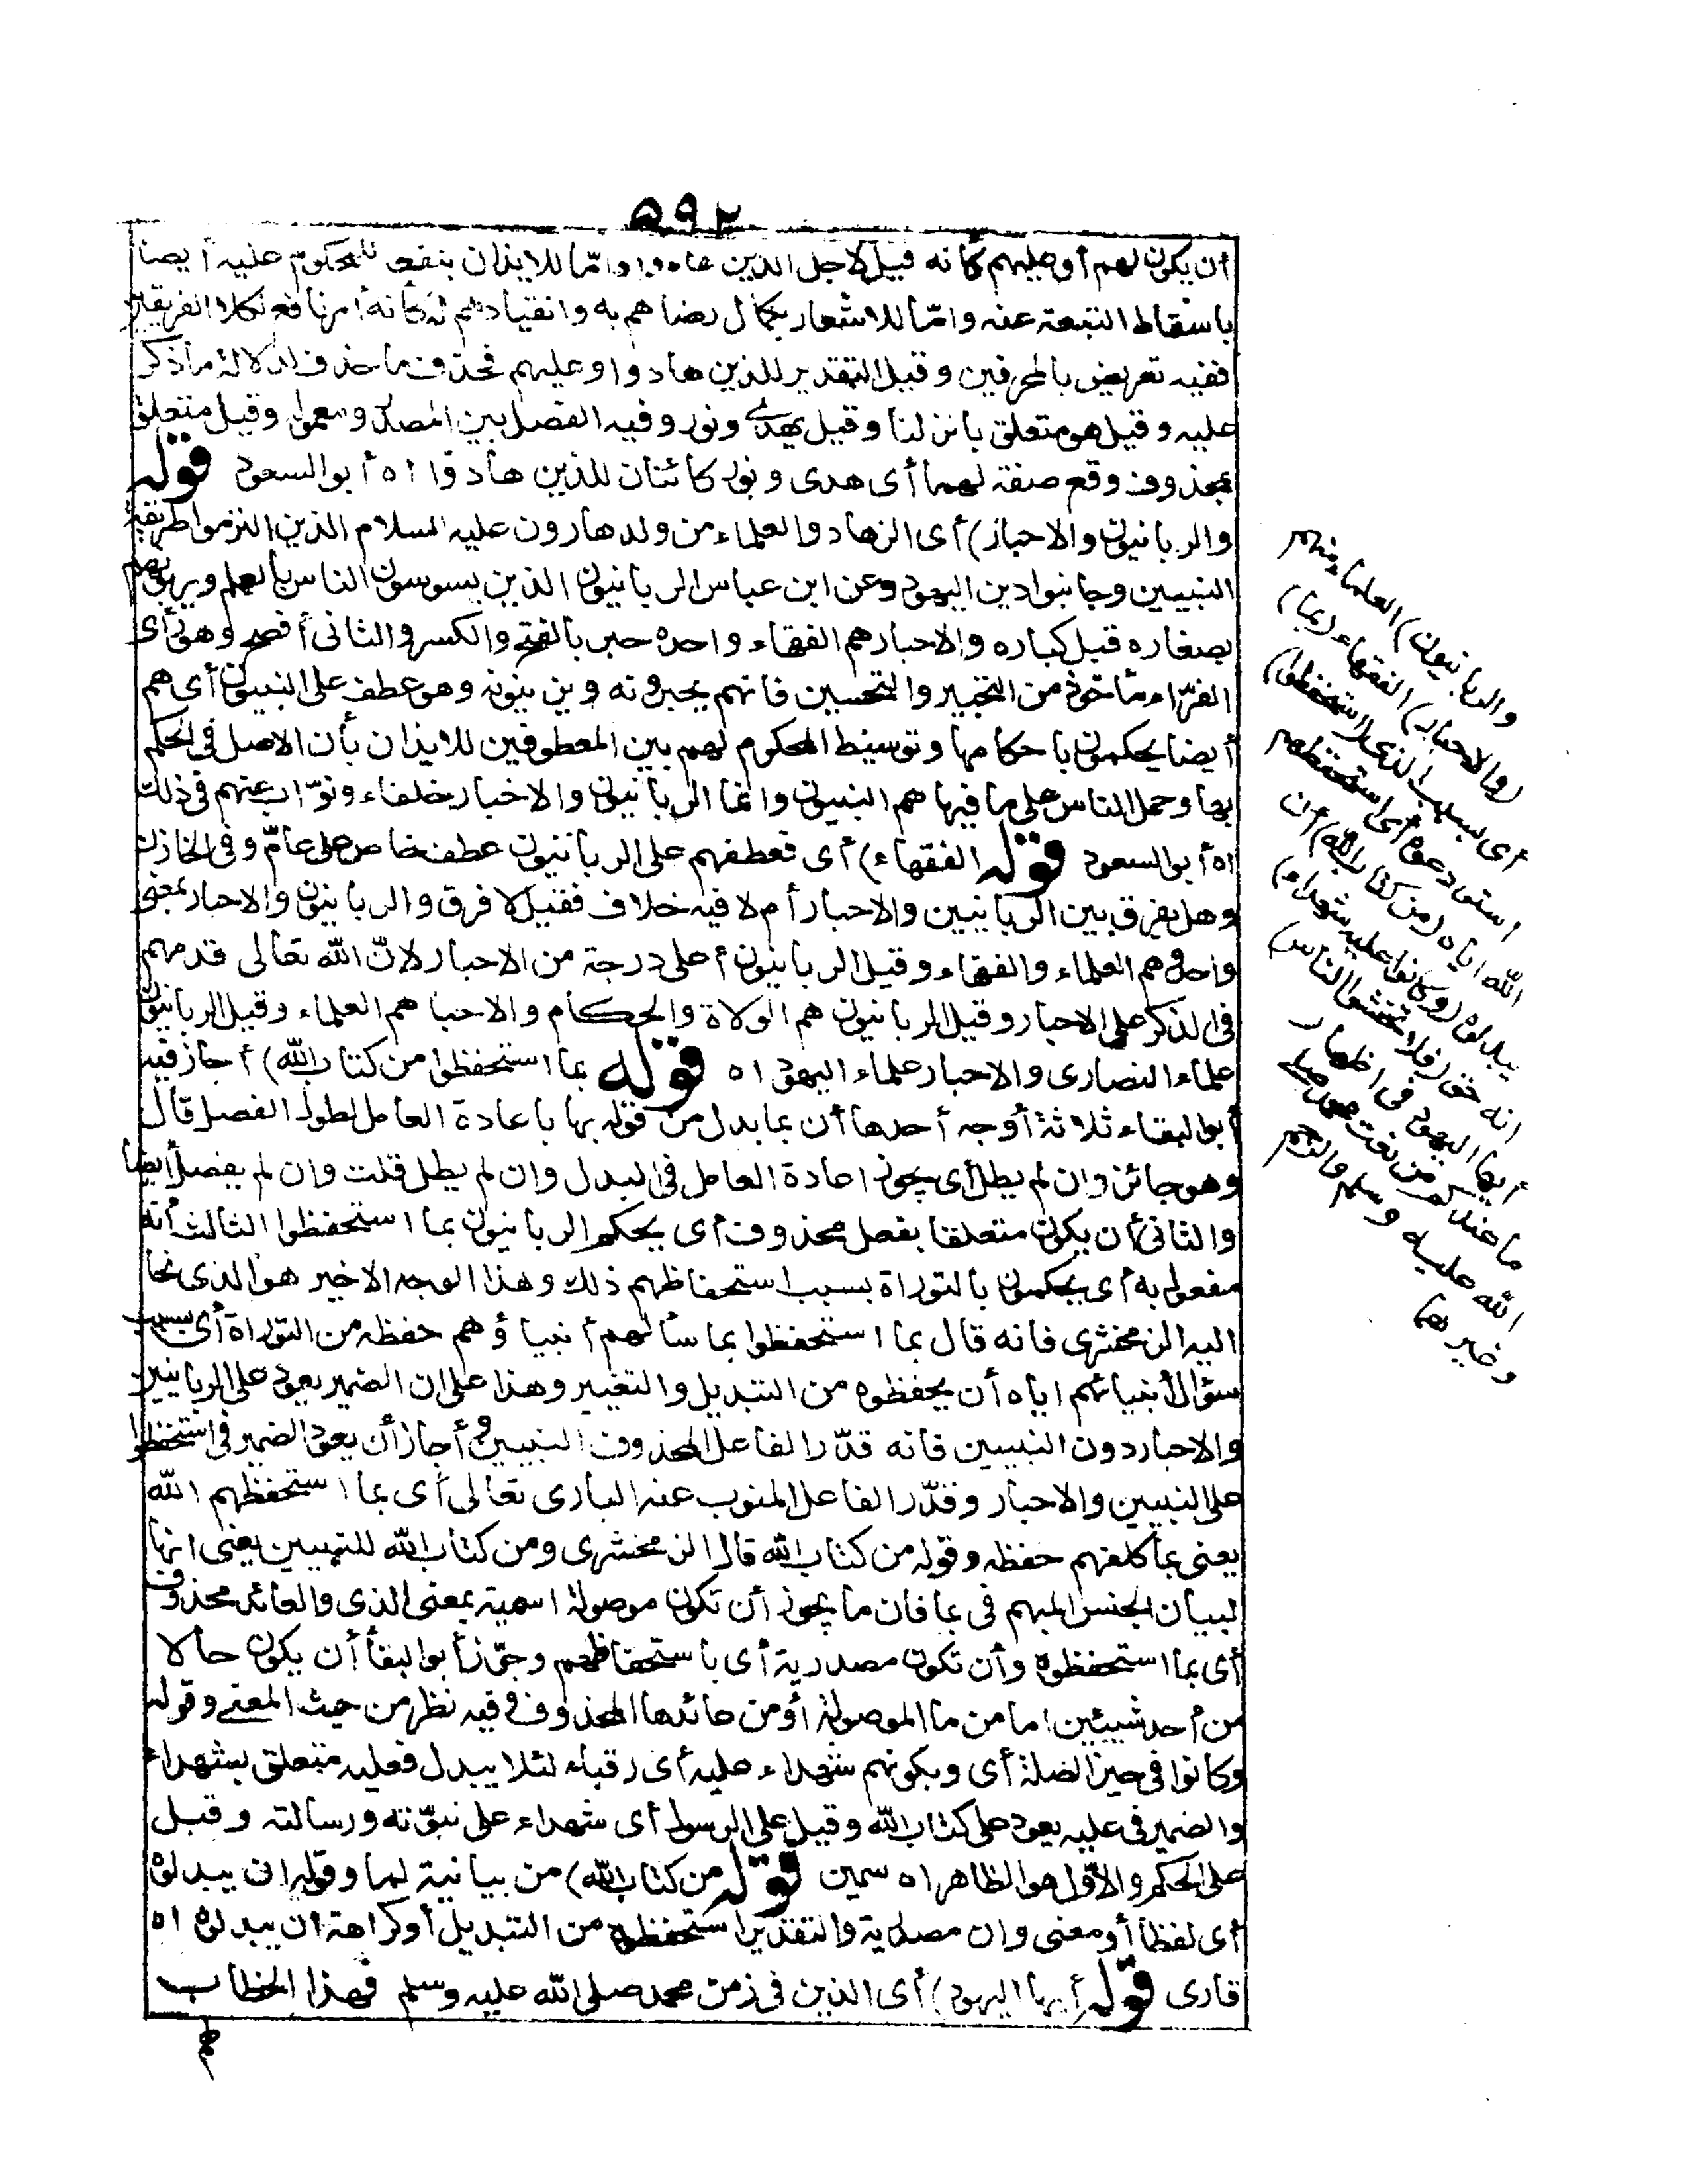 ٥٩٢
أن يكون لهم أو عليهم كأنه قيل لاجل الذين هادوا وامّا للايذان بنفع المحكوم عليه أيضا
باسقاط التبعة عنه وامّا للاشعار بكمال رضاهم به وانقيادهم له كأنه أمر نافع لكلا الفريقين
ففيه تعريض بالمحرفين وقيل التقدير للذين هادوا وعليهم فحذف ما حذف لدلالة ما ذكر
عليه وقيل هو متعلق بانزلنا وقيل بهدى ونور وفيه الفصل بين المصدر ومعموله وقيل متعلق
بمحذوف وقع صفة لهما أى هدى ونور كائنان للذين هادوا اه أبو السعود قوله
والربانيون والاحبار) أى الزهاد والعلماء من ولد هارون عليه السلام الذين التزموا طريقة
النبيين وجانبوا دين اليهود وعن ابن عباس الربانيون الذين يسوسون الناس بالعلم ويربونهم
بصغاره قبل كباره والاحبار هم الفقهاء واحده حبر بالفتح والكسر والثانى أفصح وهو رأى
الفرّاء مأخوذ من التحبير والتحسين فانهم يحبرونه ويزينونه وهو عطف على النبيون أى هم
أيضا يحكمون باحكامها وتوسيط المحكوم لهم بين المعطوفين للايذان بأن الاصل فى الحكم
بها وحمل الناس على ما فيها هم النبيون وانما الربانيون والاحبار خلفاء ونوّاب عنهم فى ذلك
اه أبو السعود قوله الفقهاء) أى فعطفهم على الربانيون عطف خاص على عامّ وفى الخازن
وهل يفرق بين الربانيين والاحبار أم لا فيه خلاف فقيل لا فرق والربانيون والاحبار بمعنى
واحد وهم العلماء والفقهاء وقيل الربانيون أعلى درجة من الاحبار لانّ الله تعالى قدمهم
فى الذكر على الاحبار وقيل الربانيون هم الولاة والحكام والاحبا هم العلماء وقيل الربانيون
علماء النصارى والاحبار علماء اليهود اه قوله بما استحفظوا من كتاب الله) أجاز فيه
أبو البقاء ثلاثة أوجه أحدها أن بما بدل من قوله بها باعادة العامل لطول الفصل قال
وهو جائز وان لم يطل أى يجوز اعادة العامل فى البدل وان لم يطل قلت وان لم يفصل أيضا
والثانى أن يكون متعلقا بفعل محذوف أى يحكم الربانيون بما استحفظوا الثالث أنه
مفعول به أى يحكمون بالتوراة بسبب استحفاظهم ذلك وهذا الوجه الاخير هو الذى نحا
اليه الزمخشرى فانه قال بما استحفظوا بما سألهم أنبياؤهم حفظه من التوراة أى بسبب
سؤال أنبيائهم اياه أن يحفظوه من التبديل والتغيير وهذا على ان الضمير يعود على الربانيين
والاحبار دون النبيين فانه قدّر الفاعل المحذوف النبيين وأجاز أن يعود الضمير فى استحفظوا
على النبيين والاحبار وقدّر الفاعل المنوب عنه البارى تعالى أى بما استحفظهم الله
يعنى بما كلفهم حفظه وقوله من كتاب الله قال الزمخشرى ومن كتاب الله للتبيين يعنى انها
لبيان الجنس المبهم فى بما فان ما يجوز أن تكون موصولة اسمية بمعنى الذى والعائد محذوف
أى بما استحفظوه وأن تكون مصدرية أى باستحفاظهم وجوّز أبو البقا أن يكون حالا
من أحد شيئين اما من ما الموصولة أو من عائدها المحذوف وفيه نظر من حيث المعنى وقوله
وكانوا فى حيز الصلة أى وبكونهم شهداء عليه أى رقباء لئلا يبدل فعليه متعلق بشهداء
والضمير فى عليه يعود على كتاب الله وقيل على الرسول أى شهداء على نبوّته ورسالته وقيل
على الحكم والاوّل هو الظاهر اه سمين قوله من كتاب الله) من بيانية لما وقوله ان يبدلوه
أى لفظا أو معنى وان مصدرية والتقدير استحفظوه من التبديل أو كراهة ان يبدلوه اه
قارى قوله أيها اليهود) أى الذين فى زمن محمد صلى الله عليه وسلم فهذا الخطاب
والربانيون) العلماء منهم
(والاحبار) الفقهاء (بما)
أى بسبب الذى (استحفظوا)
استودعوه أى استحفظهم
الله اياه (من كتاب الله) أن
يبدلوه (وكانوا عليه شهداء)
انه حق (فلا تخشوا الناس)
أيها اليهود فى اظهار
ما عندكم من نعت محمد صلى
الله عليه وسلم والرجم
وغيرها